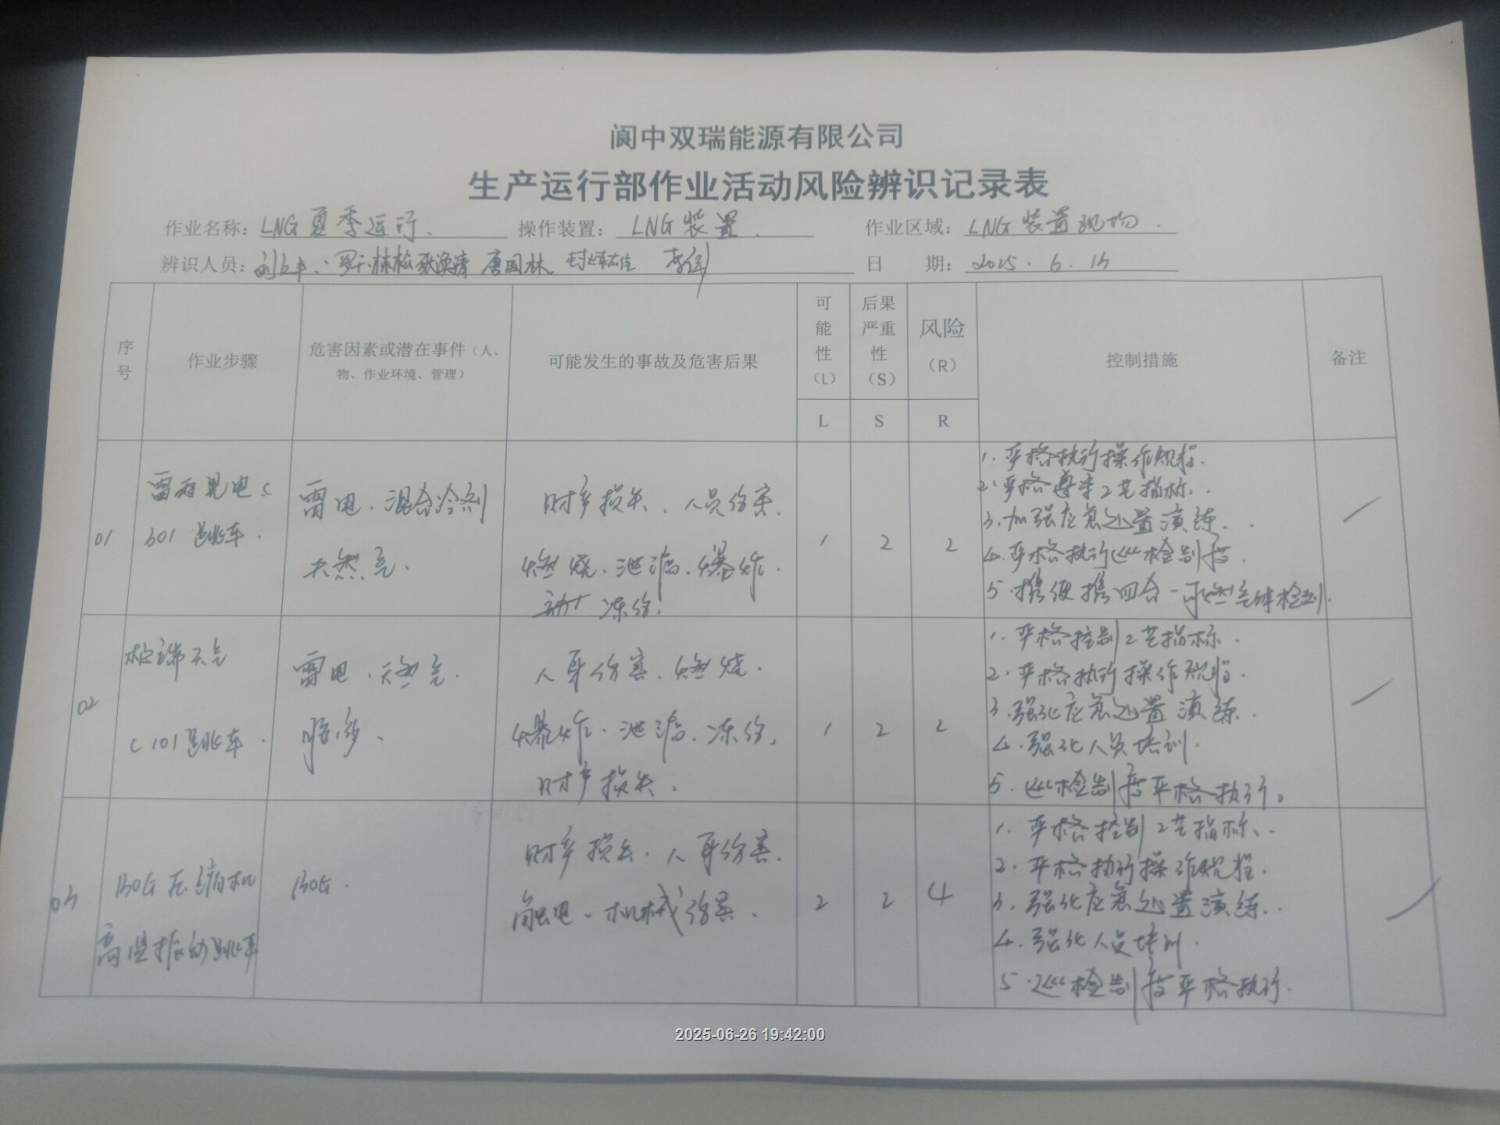 阆中双瑞能源有限公司
生产运行部作业活动风险辨识记录表
作业名称: LNG夏季运行. 操作装置: LNG装置. 作业区域: LNG装置现场.
辨识人员: 唐国林 日 期: 2025.6.
序号 作业步骤 危害因素或潜在事件（人、物、作业环境、管理） 可能发生的事故及危害后果 可能性（L） 后果严重性（S） 风险（R） 控制措施 备注
L S R
01 雷雨晃电C301跳车. 雷电.混合冷剂 天然气. 财产损失.人员伤害. 燃烧.泄漏.爆炸. 冻伤. 1 2 2
1.严格执行操作规程.
2.严格遵守工艺指标.
3.加强应急处置演练.
4.严格执行巡检制度.
5.携便携四合一可燃气体检测.
02 极端天气 C101跳车. 雷电.天然气. 人身伤害.燃烧. 爆炸.泄漏.冻伤, 财产损失. 1 2 2
1.严格控制工艺指标.
2.严格执行操作规程.
3.强化应急处置演练.
4.强化人员培训.
5.巡检制度严格执行。
03 BOG压缩机 高温振动跳车 BOG. 财产损失.人身伤害. 触电.机械伤害. 2 2 4
1.严格控制工艺指标.
2.严格执行操作规程.
3.强化应急处置演练.
4.强化人员培训.
5.巡检制度严格执行.
2025-06-26 19:42:00